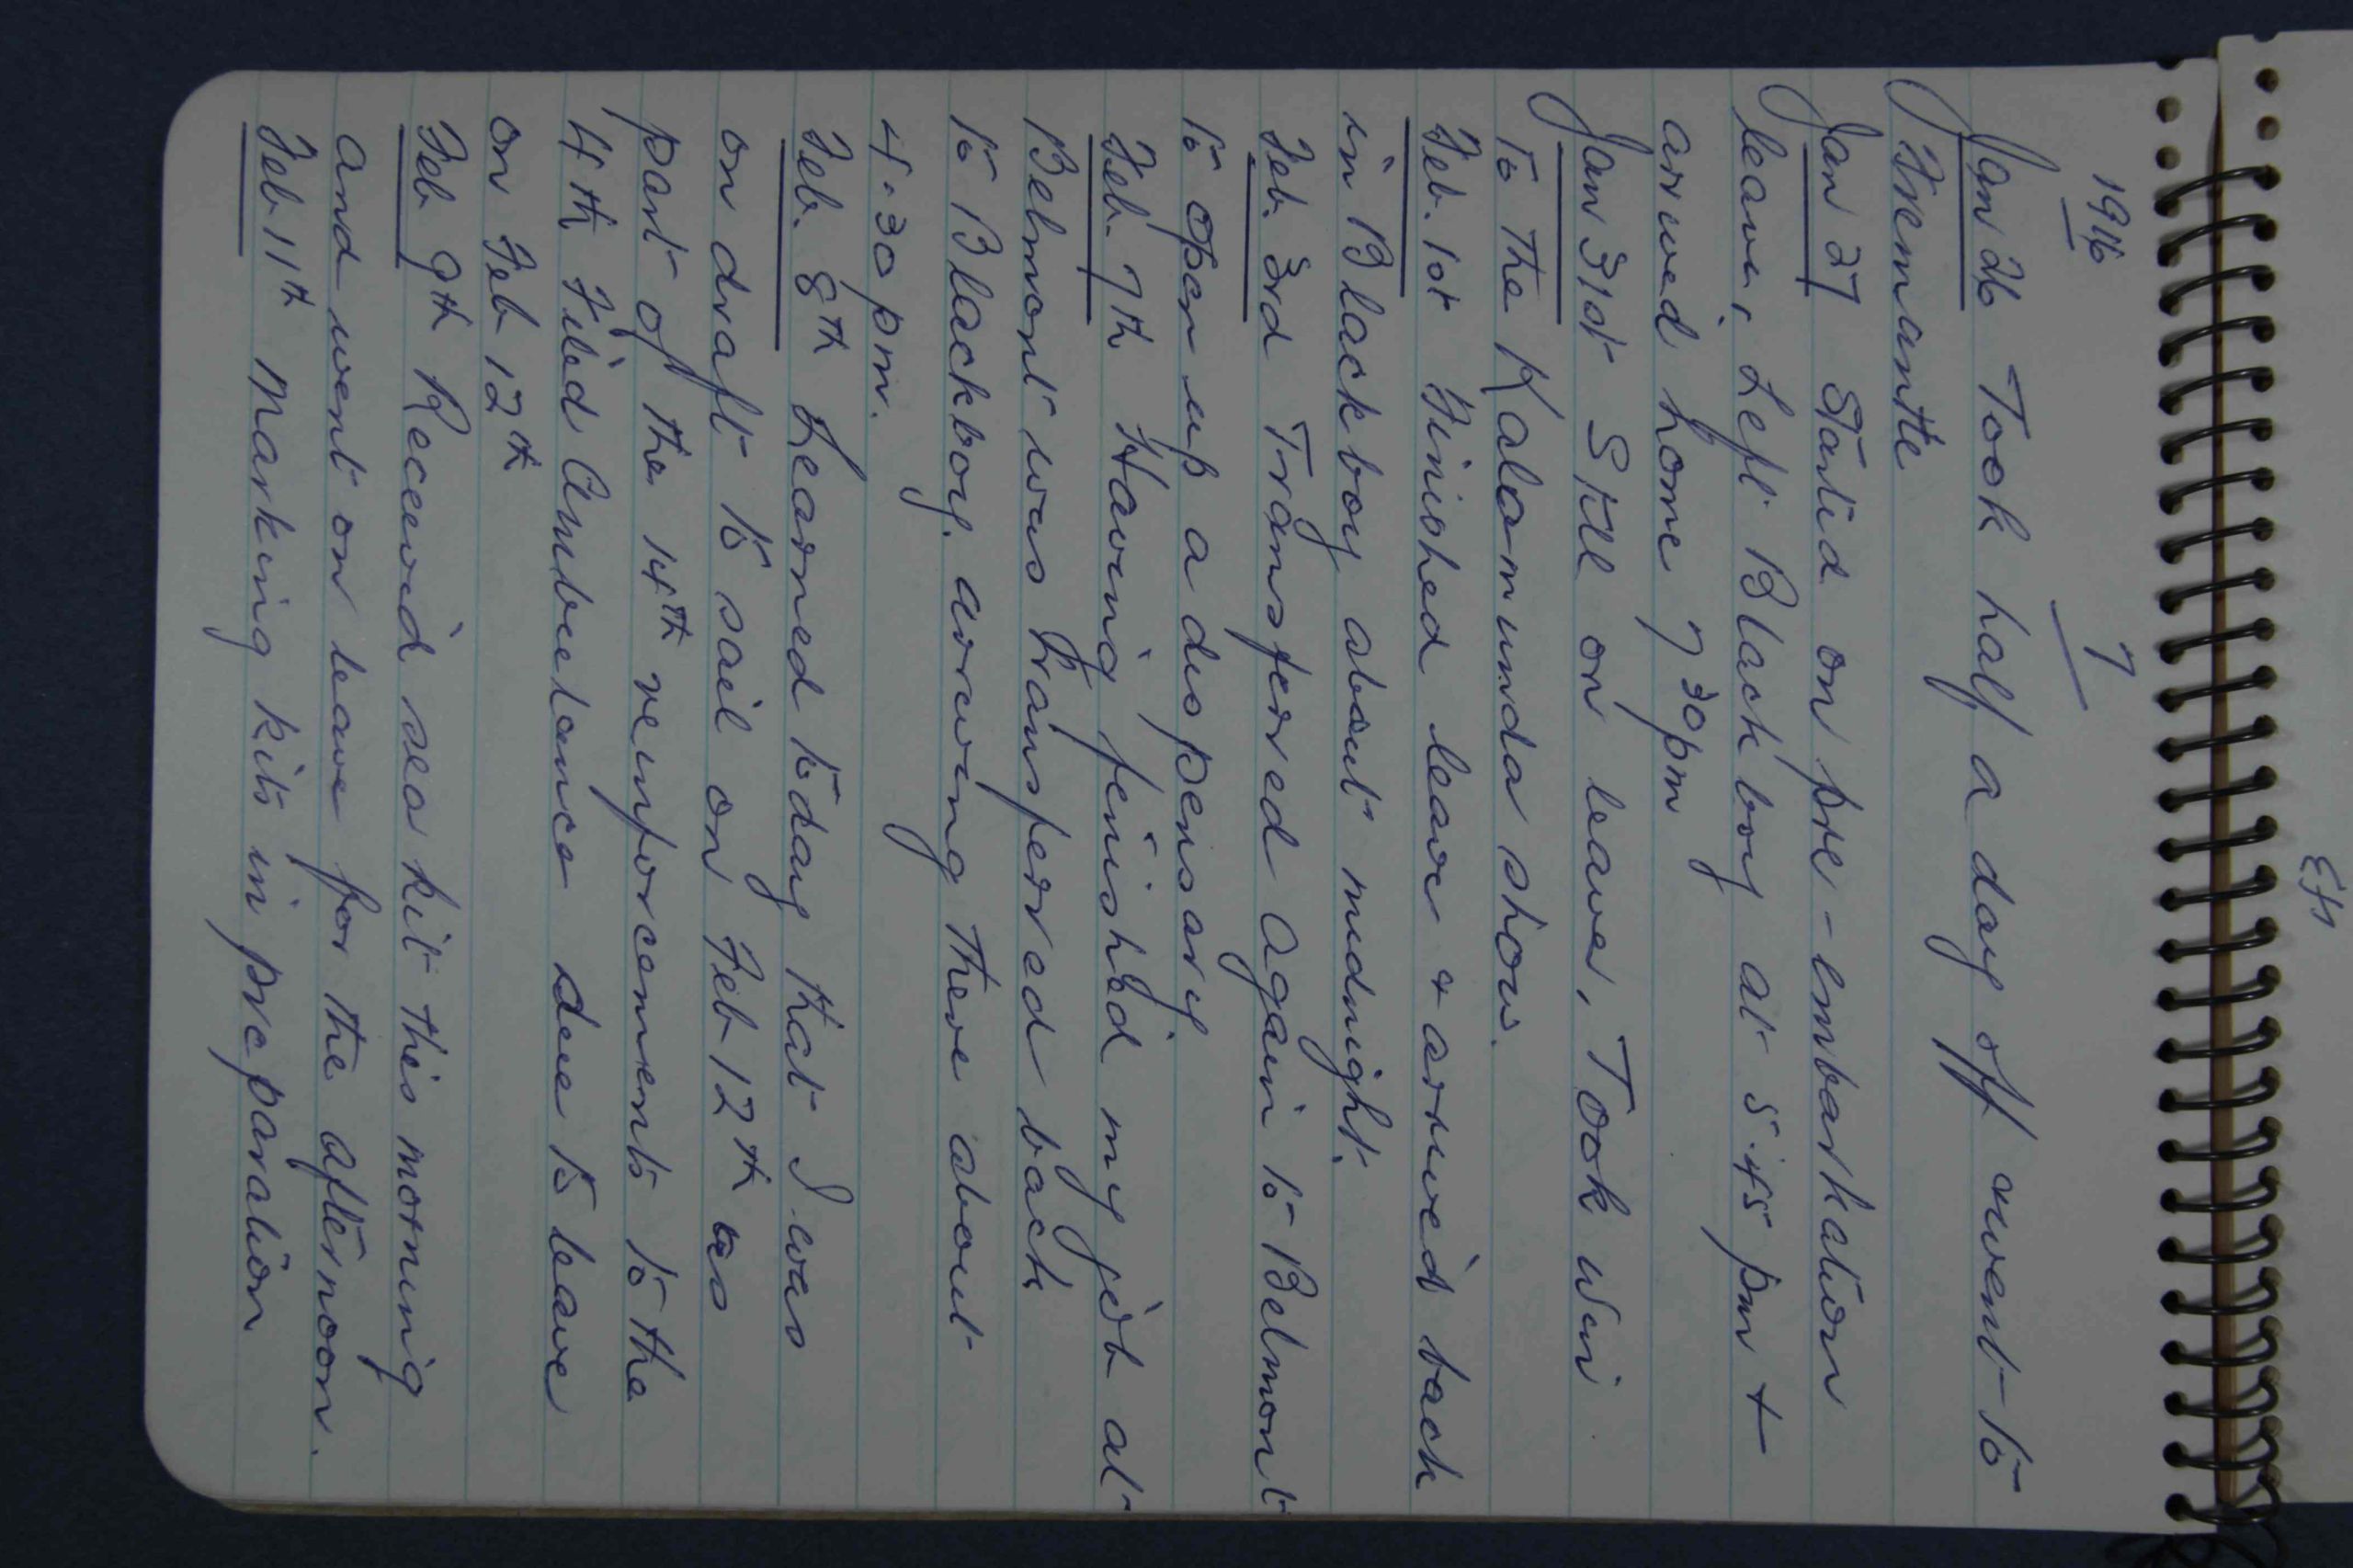 1916
7
Jan 26 Took half a day off & went to
Fremantle
Jan 27 Started on pre-embarkation
leave, Left Blackboy at 5.45 pm &
arrived home 7 30 pm
Jan 31st Still on leave, Took Win
to the Kalamunda show.
Feb. 1st Finished leave & arrived back
in Blackboy about midnight.
Feb. 3rd Transferred again to Belmont
to open up a dispensary.
Feb. 7th Having finished my job at
Belmont was transferred back
to Blackboy, arriving there about
4.30 pm.
Feb. 8th Learned today that I was
on draft to sail on Feb 12th as
part of the 14th reinforcements to the
4th Field Ambulance due to leave
on Feb 12th
Feb 9th Received sea kit this morning
and went on leave for the afternoon.
Feb 11th Marking kits in preparation